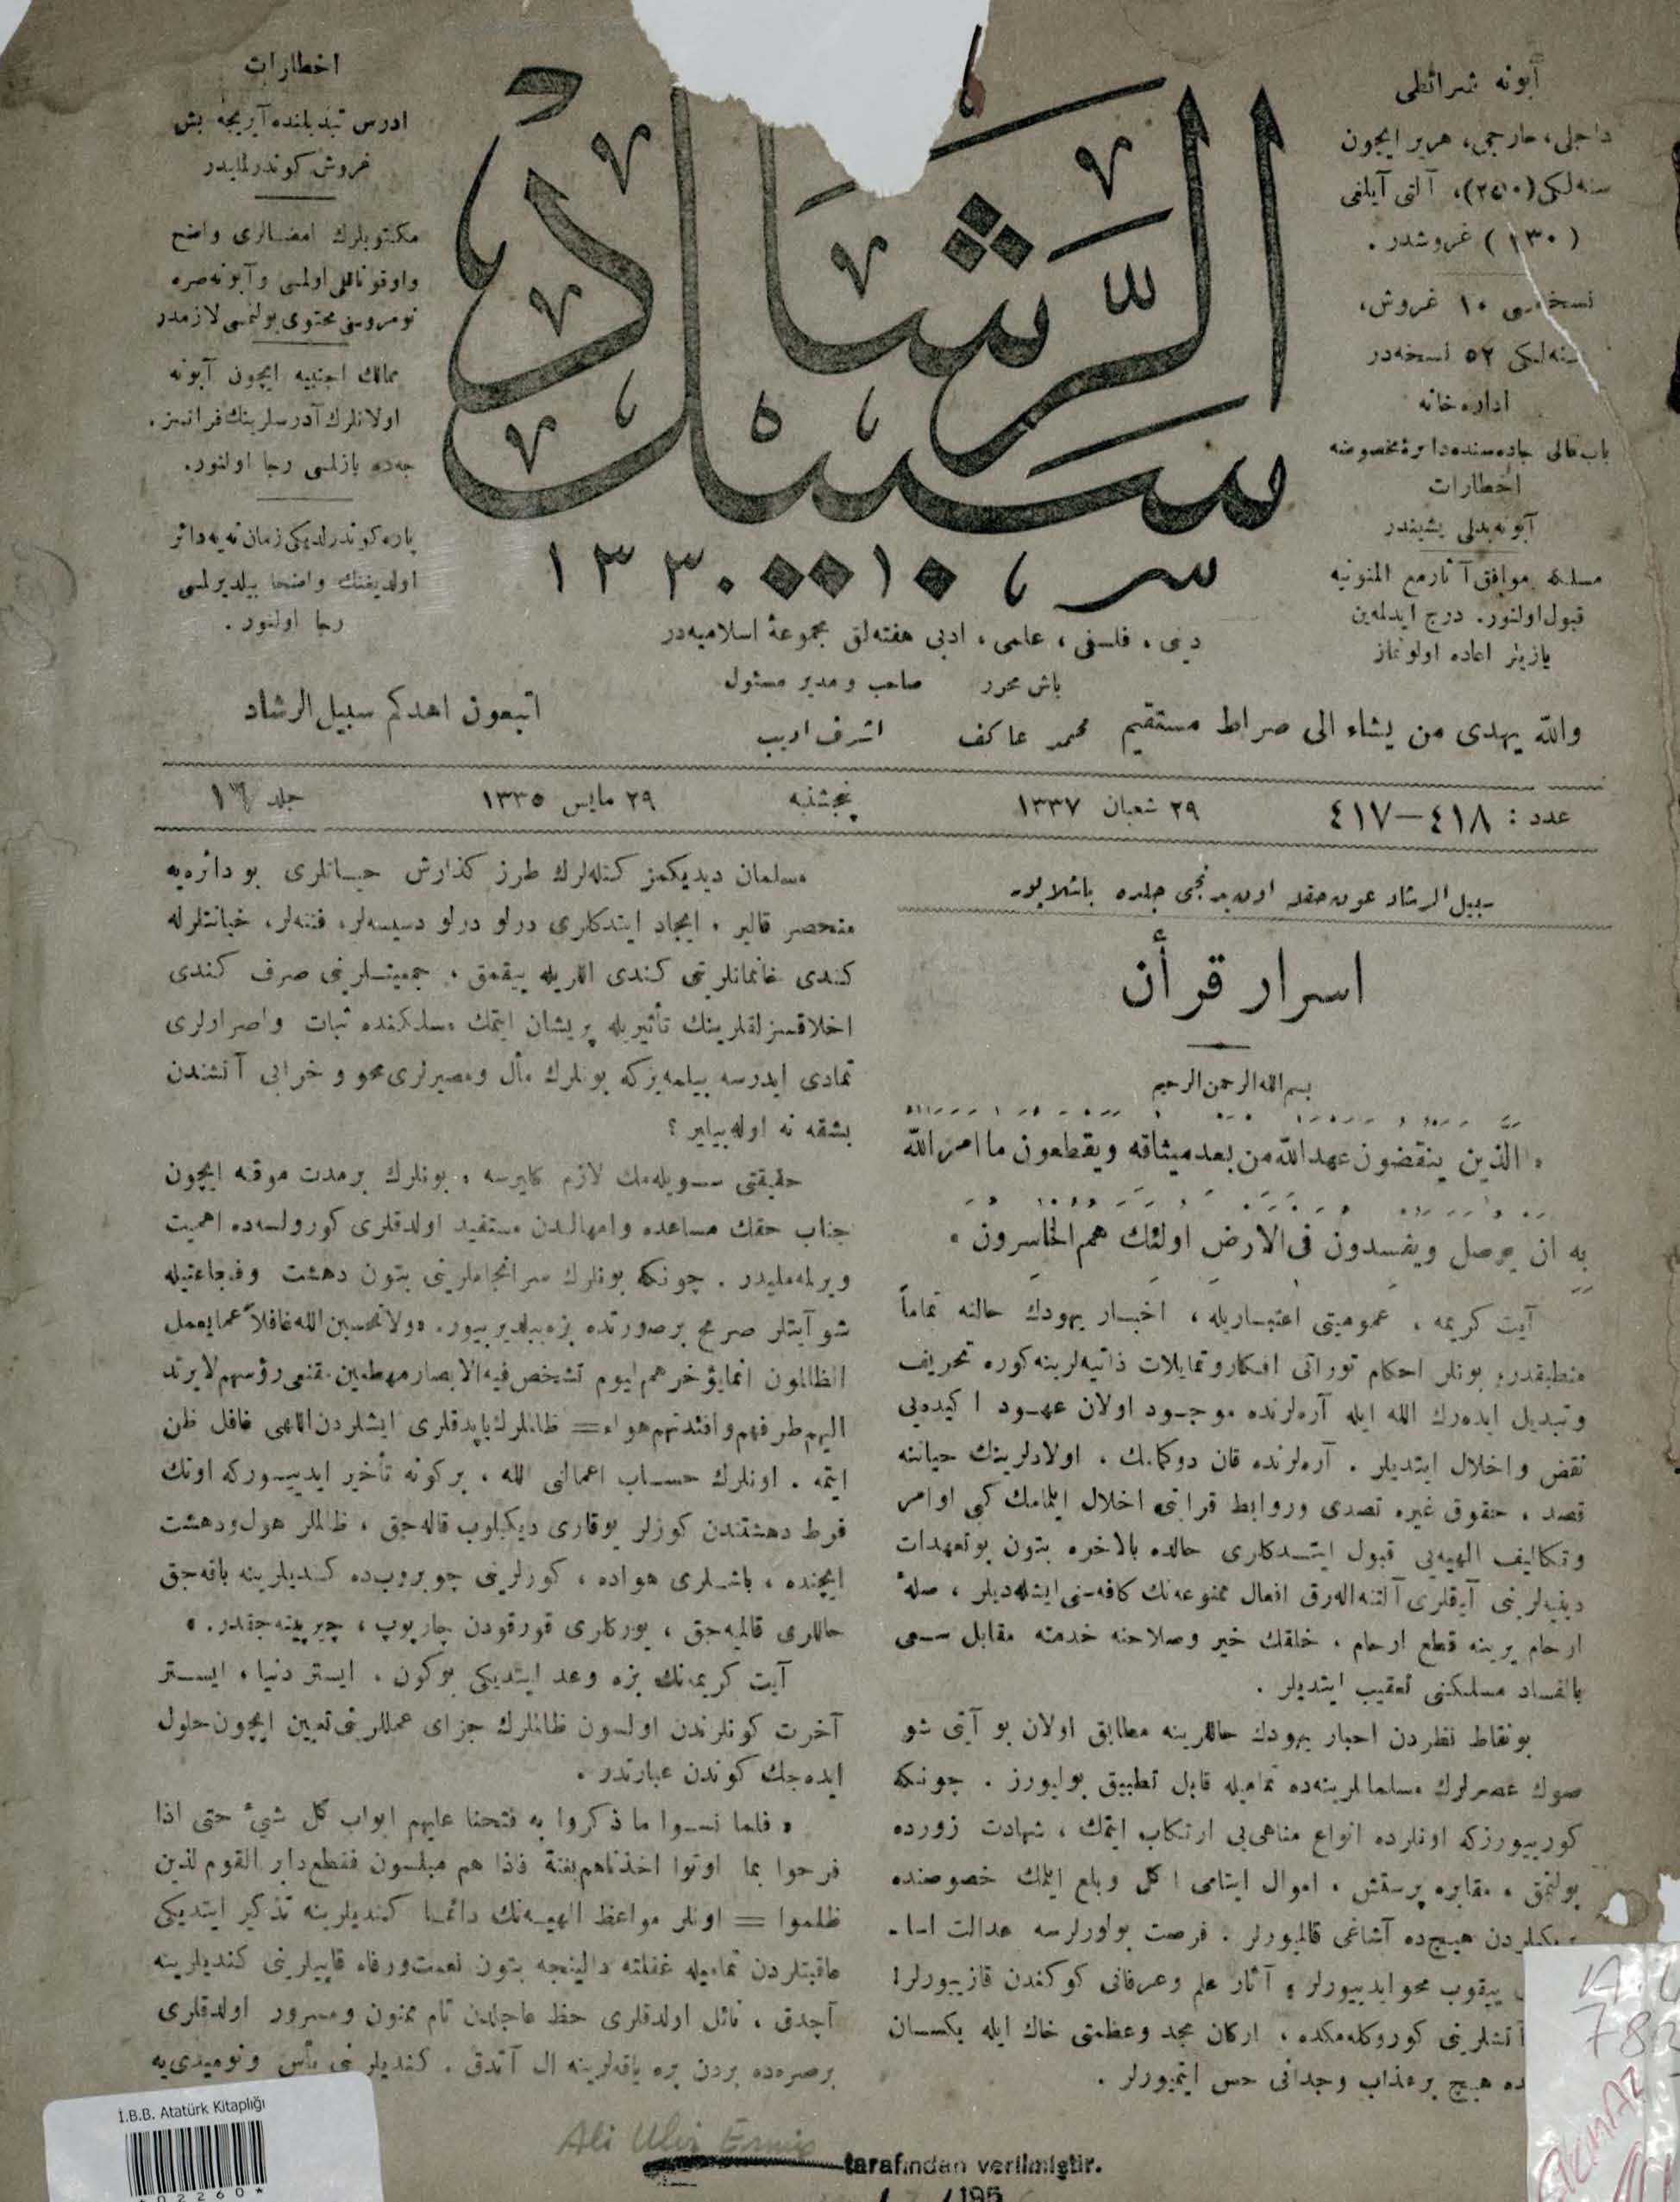 آبونه شرائطی
داخلی، خارجی، هر یر ایچون
سنه‌لکی (٢٥٠)، آلتی آیلغی
(١٣٠) غروشدر.
نسخه‌سی ١٠ غروش،
سنه‌لکی ٥٢ نسخه‌در
اداره‌خانه
باب عالی جاده‌سنده دائرهٔ مخصوصه
اخطارات
آبونه بدلی پشیندر
مسلکه موافق آثار مع الممنونیه
قبول اولنور. درج ایدلمه‌ین
یازیلر اعاده اولونماز
اخطارات
ادرس تبدیلنده آیریجه بش
غروش کوندرلملیدر
مکتوبلرك امضالری واضح
واوقوناقلی اولمسی و آبونه صره
نومروسنی محتوی بولنمسی لازمدر
ممالك اجنبیه ایچون آبونه
اولانلرك آدرسلرینك فرانسز-
جه‌ده یازلمسی رجا اولنور.
پاره کوندرلدیکی زمان نه‌یه دائر
اولدیغنك واضحا بیلدیرلمسی
رجا اولنور.
سبیل الرشاد
١٣٣٠
دینی، فلسفی، علمی، ادبی هفته‌لق مجموعهٔ اسلامیه‌در
باش محرر صاحب و مدیر مسئول
محمد عاکف اشرف ادیب
والله یهدی من یشاء الی صراط مستقیم
اتبعون اهدکم سبیل الرشاد
عدد: ٤١٨—٤١٧ ٢٩ شعبان ١٣٣٧ پنجشنبه ٢٩ مایس ١٣٣٥ جلد ١٦
سبیل الرشاد عون حقله اون یدنجی جلده باشلایور
اسرار قرأن
بسم الله الرحمن الرحیم
«الذین ینقضون عهد الله من بعد میثاقه ویقطعون ما امر الله
به ان یوصل ویفسدون فی الارض اولئك هم الخاسرون»
آیت کریمه، عمومیتی اعتباریله، اخبار یهودك حالنه تماماً
منطبقدر. بونلر احکام توراتی افکار و تمایلات ذاتیه‌لرینه کوره تحریف
وتبدیل ایده‌رك الله ایله آره‌لرنده موجود اولان عهود اکیده‌یی
نقض واخلال ایتدیلر. آره‌لرنده قان دوکمامك، اولادلرینك حیاتنه
قصد، حقوق غیره تصدی وروابط قرابتی اخلال ایلمامك کبی اوامر
وتکالیف الهیه‌یی قبول ایتدکلری حالده بالاخره بتون بو تعهدات
دینیه‌لرینی آیاقلری آلتنه اله‌رق افعال ممنوعه‌نك کافه‌سنی ایشله‌دیلر، صلهٔ
ارحام یرینه قطع ارحام، خلقك خیر وصلاحنه خدمته مقابل سعی
بالفساد مسلکنی تعقیب ایتدیلر.
بو نقاط نظردن احبار یهودك حاللرینه مطابق اولان بو آیتی شو
صوك عصرلرك مسلمانلرینه‌ده تمامیله قابل تطبیق بولیورز. چونکه
کورییورزکه اونلرده انواع مناهی‌یی ارتکاب ایتمك، شهادت زورده
بولنمق، مقابره پرستش، اموال ایتامی اکل وبلع ایتمك خصوصنده
هیچ‌ده آشاغی قالمیورلر. فرصت بولورلرسه عدالت اسا-
ییقوب محو ایدییورلر، آثار علم وعرفانی کوکندن قازییورلر!
آتشلرینی کوروکله‌مکده، ارکان مجد وعظمتی خاك ایله یکسان
ده هیچ بر عذاب وجدانی حس ایتمیورلر.
مسلمان دیدیکمز کتله‌لرك طرز کذارش حیاتلری بو دائره‌یه
منحصر قالیر، ایجاد ایتدکلری درلو درلو دسیسه‌لر، فتنه‌لر، خیانتلرله
کندی خانمانلرینی کندی اللریله ییقمق، جمعیتلرینی صرف کندی
اخلاقسزلقلرینك تأثیریله پریشان ایتمك مسلکنده ثبات واصرارلری
تمادی ایدرسه بیلمه‌یزکه بونلرك مأل ومصیرلری محو و خرابی آتشندن
بشقه نه اوله‌بیلیر؟
حقیقتی سویله‌مك لازم کلیرسه، بونلرك بر مدت موقه ایچون
جناب حقك مساعده وامهالندن مستفید اولدقلری کورولسه‌ده اهمیت
ویرلمه‌ملیدر. چونکه بونلرك سرانجاملرینی بتون دهشت وفجاعتیله
شو آیتلر صریح بر صورتده بزه بیلدیرییور. «ولا تحسبن الله غافلاً عما یعمل
الظالمون انما یؤخرهم لیوم تشخص فیه الابصار مهطعین مقنعی رؤسهم لا یرتد
الیهم طرفهم وافئدتهم هواء = ظالملرك یاپدقلری ایشلردن اللهی غافل ظن
ایتمه. اونلرك حساب اعمالنی الله، بر کونه تأخیر ایدییورکه اونك
فرط دهشتندن کوزلر یوقاری دیکیلوب قاله‌جق، ظالملر هول ودهشت
ایچنده، باشلری هواده، کوزلرینی چویروب‌ده کندیلرینه باقه‌جق
حاللری قالمیه‌جق، یورکلری قورقودن چارپوب، چیرپینه‌جقدر.»
آیت کریمه‌نك بزه وعد ایتدیکی بو کون، ایستر دنیا، ایستر
آخرت کونلرندن اولسون ظالملرك جزای عمللرینی تعیین ایچون حلول
ایده‌جك کوندن عبارتدر.
«فلما نسوا ما ذکروا به فتحنا علیهم ابواب کل شیٔ حتی اذا
فرحوا بما اوتوا اخذناهم بغتة فاذا هم مبلسون فقطع دابر القوم الذین
ظلموا = اونلر مواعظ الهیه‌نك دائما کندیلرینه تذکیر ایتدیکی
عاقبتلردن تمامیله غفلته دالینجه بتون نعمت ورفاه قاپیلرینی کندیلرینه
آچدق، نائل اولدقلری حظ عاجلدن تام ممنون ومسرور اولدقلری
بر صره‌ده بردن بره یاقه‌لرینه ال آتدق. کندیلرینی یأس ونومیدی‌یه
İ.B.B. Atatürk Kitaplığı
*02260*
Ali Ulvi
tarafından verilmiştir.
195